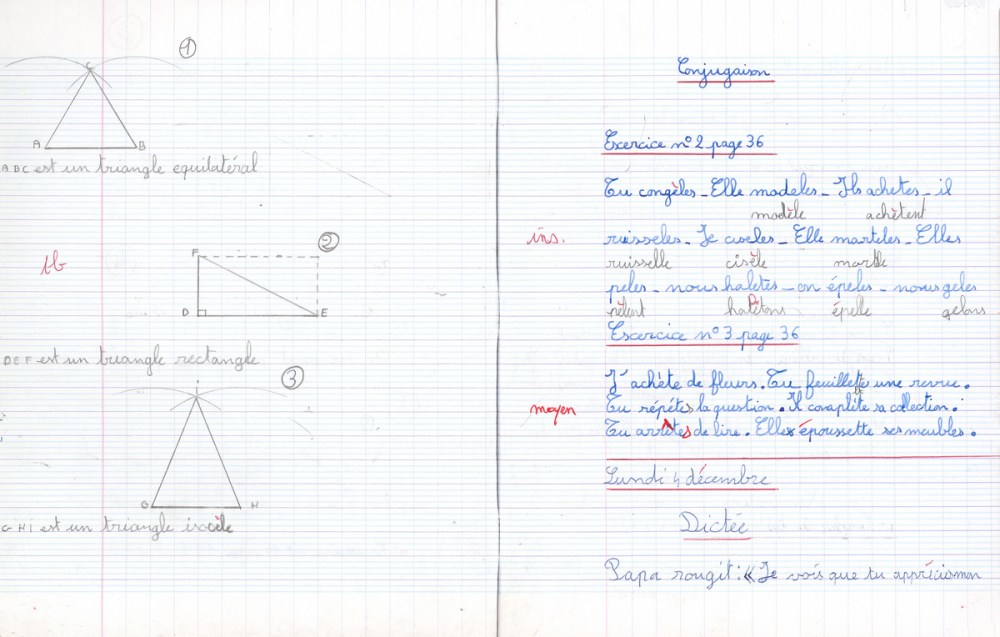 1
C
A B
ABC est un triangle equilatéral
tb
2
F
D E
DEF est un triangle rectangle
3
I
G H
GHI est un triangle isocèle
Conjugaison
Exercice n°2 page 36
Tu congèles _ Elle modeles _ Ils achetes _ il
modèle achètent
ins.
ruisseles _ Je ciseles _ Elle marteles _ Elles
ruisselle cisèle
peles _ nous haletes _ on épeles _ nous geles
pèlent haletons épelle gelons
Exercice n°3 page 36
J'achète de fleurs. Tu feuillette une revue.
moyen
Tu répétes la question. Il complète sa collection.
Tu arrêtes de lire. Elle époussette ses meubles.
Lundi 4 décembre
Dictée
Papa rougit : « Je vois que tu apprécis mon